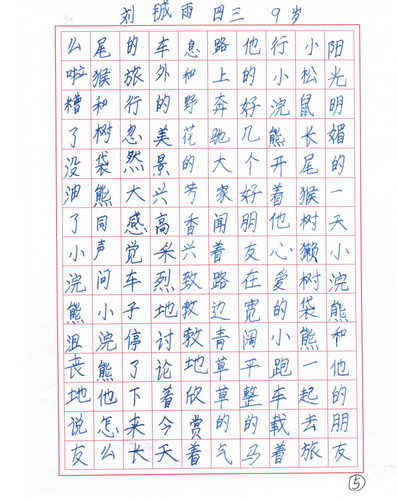 刘铖雨 四三 9岁
阳光明媚的一天小浣熊和他的朋友
小松鼠长尾猴树獭树袋熊一起去旅
行小浣熊开着他心爱的小跑车载着
他的好几个好朋友在宽阔平整的马
路上奔驰大家闻着路边青草草的气
息和野花的芳香兴致勃勃地欣赏着
车外的美景兴高采烈地讨论着今天
的旅行忽然大感觉车子停了下来长
尾猴和树袋熊同声问小浣熊他怎么
么啦糟了没油了小浣熊沮丧地说友
⑤